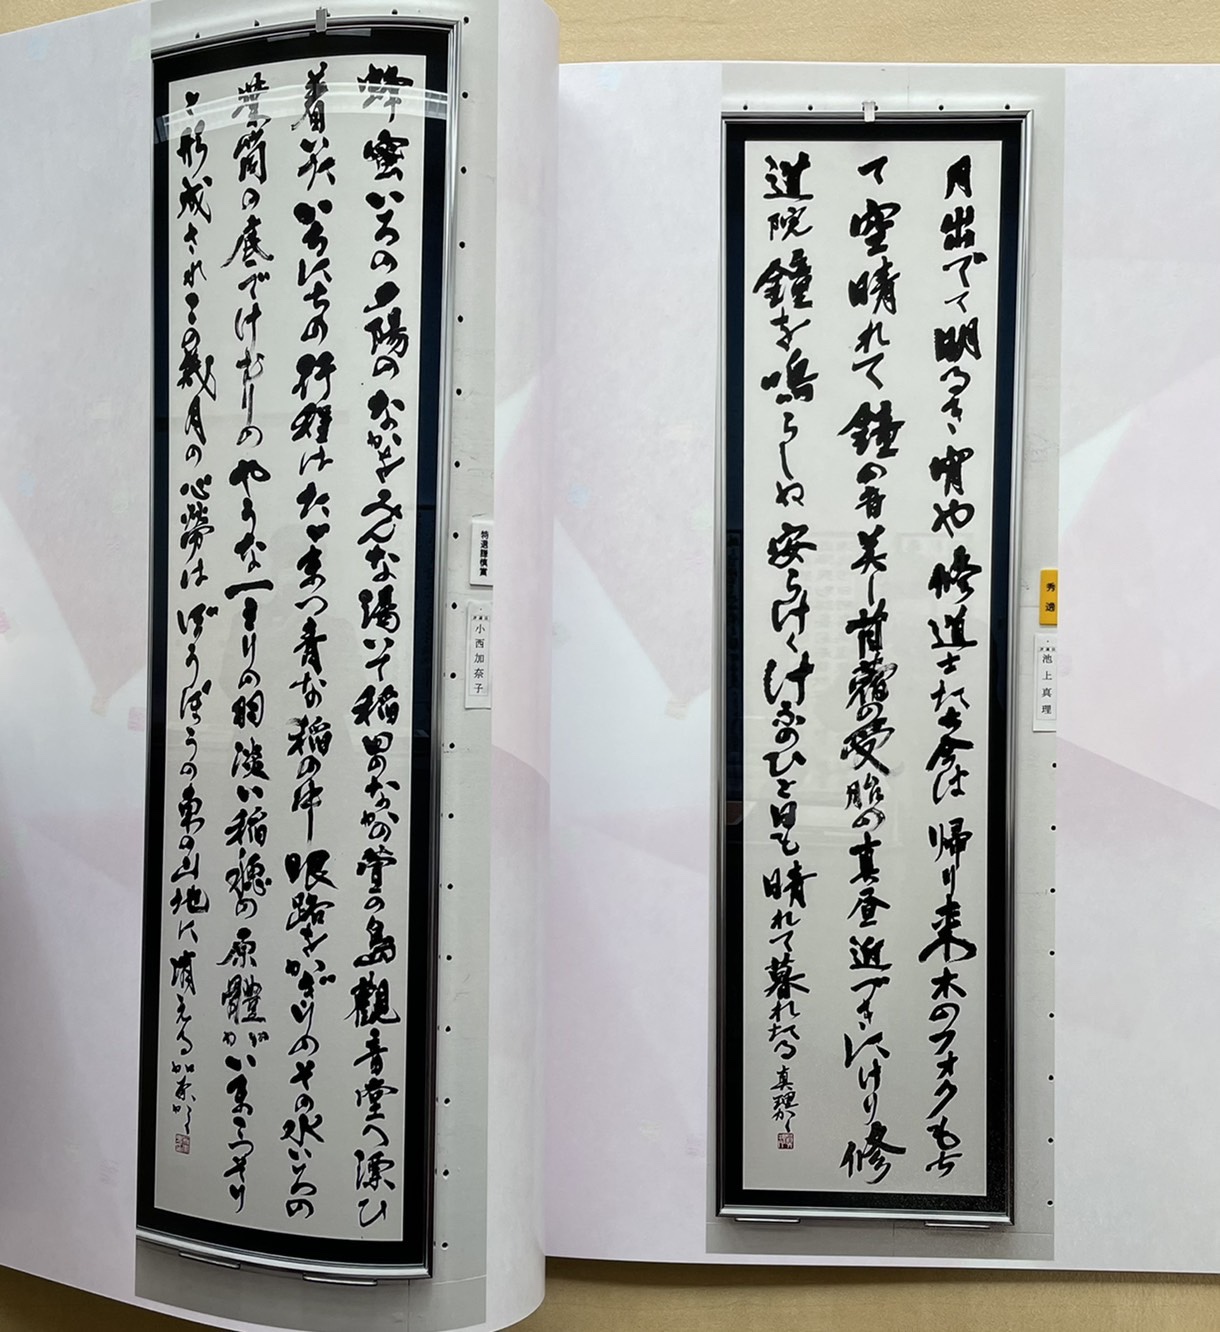 月出でて明るき宵や修道士たち今は帰り来木のフオクもち
て空晴れて鐘の音美し苜蓿の受胎の真昼近づきにけり修
道院鐘を鳴らしぬ安らけくけふのひと日も晴れて暮れたる 真理かく
秀選
池上真理
蜂蜜いろの夕陽のなかをみんな渇いて稲田のなかの萱の島觀音堂へ漂ひ
着いたいちにちの行程はたゞまつ青な稲の中眼路をかぎりのその水いろの
葉筒の底でけむりのやうな一ミリの羽淡い稲穂の原體がいまこつそり
と形成されこの幾月の心労はぼうぼうの東の山地に消える 加奈かく
特選謙慎賞
小西加奈子